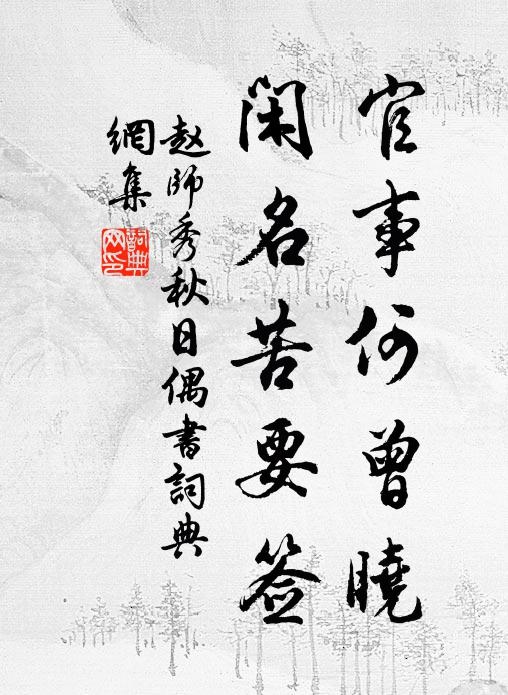 官事何曾曉
闲名苦要签
赵師秀秋日偶書詞典
網集
詞典
网印